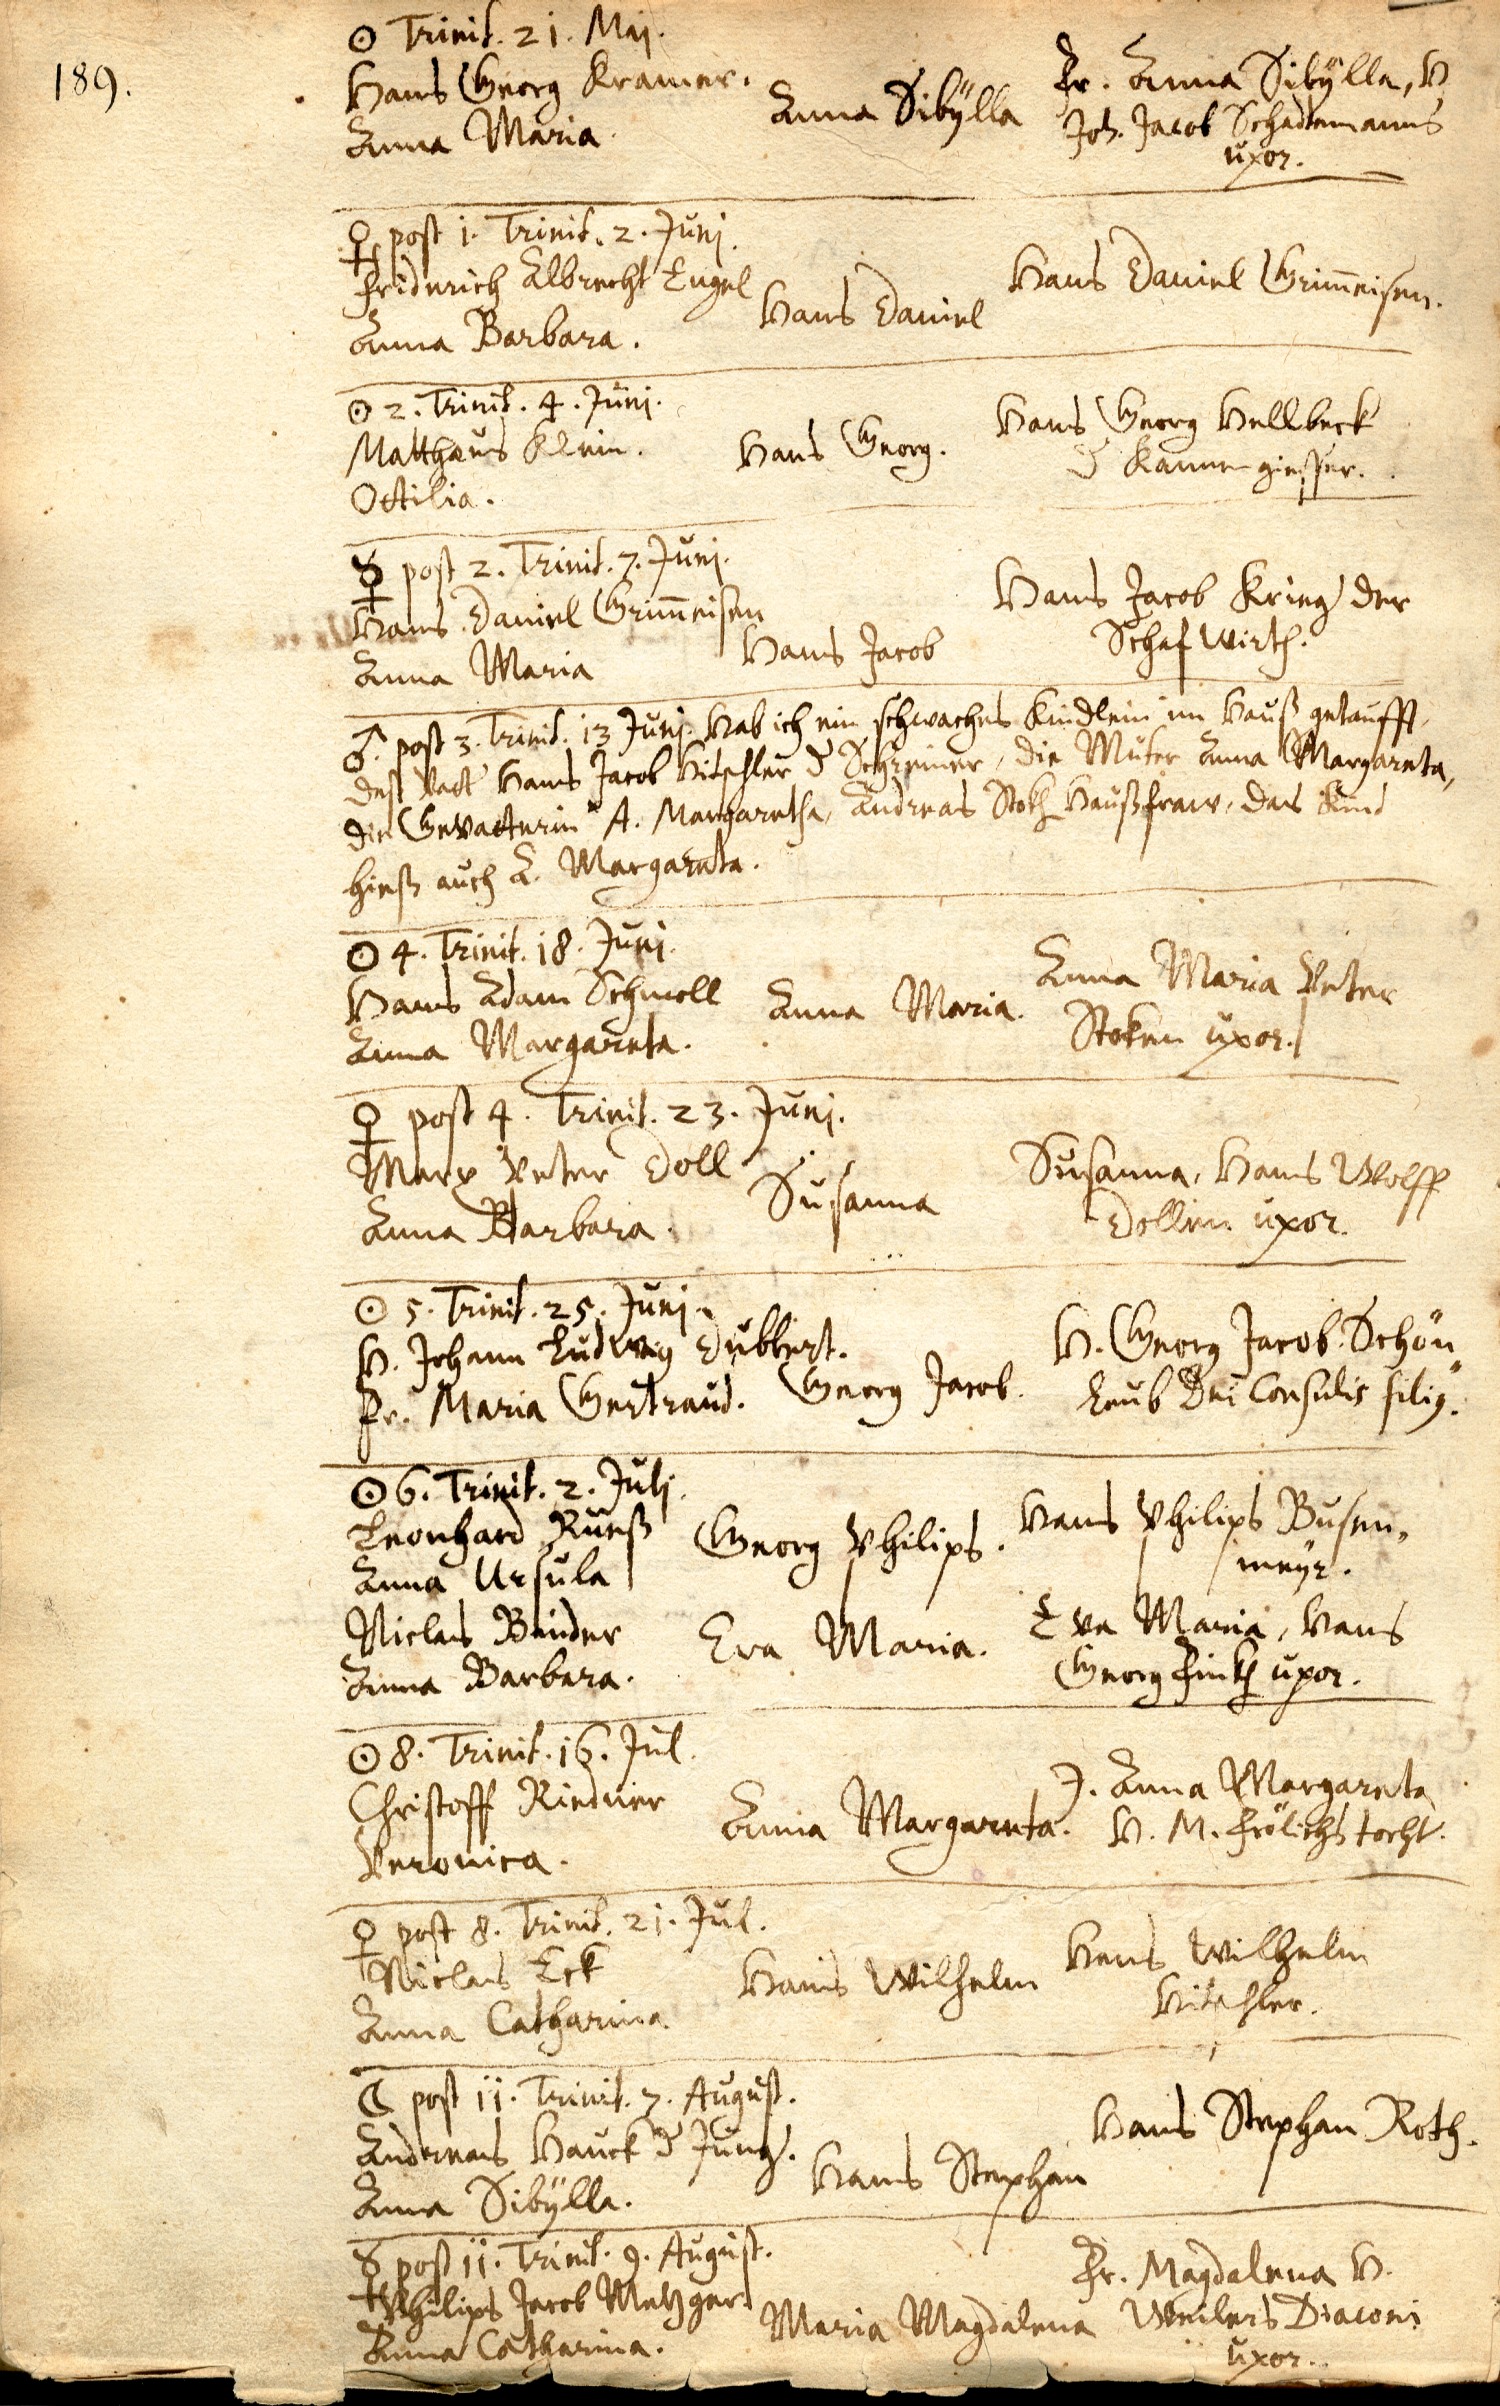 189.
☉ Trinit. 21. Maj.
Hans Georg Kramer.
Anna Maria.
Anna Sibÿlla
Fr. Anna Sibÿlla, H.
Joh. Jacob Schademanns
uxor.
♀ post 1. Trinit. 2. Junj.
Friderich Albrecht Engel
Anna Barbara.
Hans Daniel
Hans Daniel Grim̄eisen.
☉ 2. Trinit. 4. Junj.
Matthæus Klein.
Ottilia.
Hans Georg.
Hans Georg Hellbeck
d Kannengiesser.
☿ post 2. Trinit. 7. Junj.
Hans Daniel Grim̄eisen
Anna Maria
Hans Jacob
Hans Jacob Krieg der
Schafwirth.
♂ post 3. Trinit. 13 Junj. Hab ich ein schwaches Kindlein im Hauß getaufft,
deß Vatt Hans Jacob Hitschler d Schreiner, die Muter Anna Margareta,
die Gevatterin A. Margaretha, Andreas Stoks Haußfraw, das Kind
hieß auch A. Margareta.
☉ 4. Trinit. 18. Junj.
Hans Adam Schmoll
Anna Margareta.
Anna Maria.
Anna Maria Peter
Stoken uxor.
♀ post 4. Trinit. 23. Junj.
Marx Peter Doll
Anna Barbara.
Susanna
Susanna, Hans Wolff
Dollen uxor.
☉ 5. Trinit. 25. Junj.
H. Johann Ludwig Dubbert.
Fr. Maria Gertraud.
Georg Jacob.
H. Georg Jacob Schön
laub Dni Consulis filiꝰ.
☉ 6. Trinit. 2. Julj.
Leonhard Rueß
Anna Ursula
Georg Philips.
Hans Philips Busen,
meÿr.
Niclas Binder
Anna Barbara.
Eva Maria.
Eva Maria, Hans
Georg Finks uxor.
☉ 8. Trinit. 16. Jul.
Christoff Riedner
Veronica.
Anna Margareta.
J. Anna Margareta
H. M. Frölichs tocht.
♀ post 8. Trinit. 21. Jul.
Niclas Eck
Anna Catharina.
Hans Wilhelm
Hans Wilhelm
Hitschler.
☾ post 11. Trinit. 7. August.
Andreas Hauck d Jung.
Anna Sibÿlla.
Hans Stephan
Hans Stephan Roth.
☿ post 11. Trinit. 9. August.
Philips Jacob Metzger.
Anna Catharina.
Maria Magdalena
Fr. Magdalena H.
Weilers Diaconi
uxor.